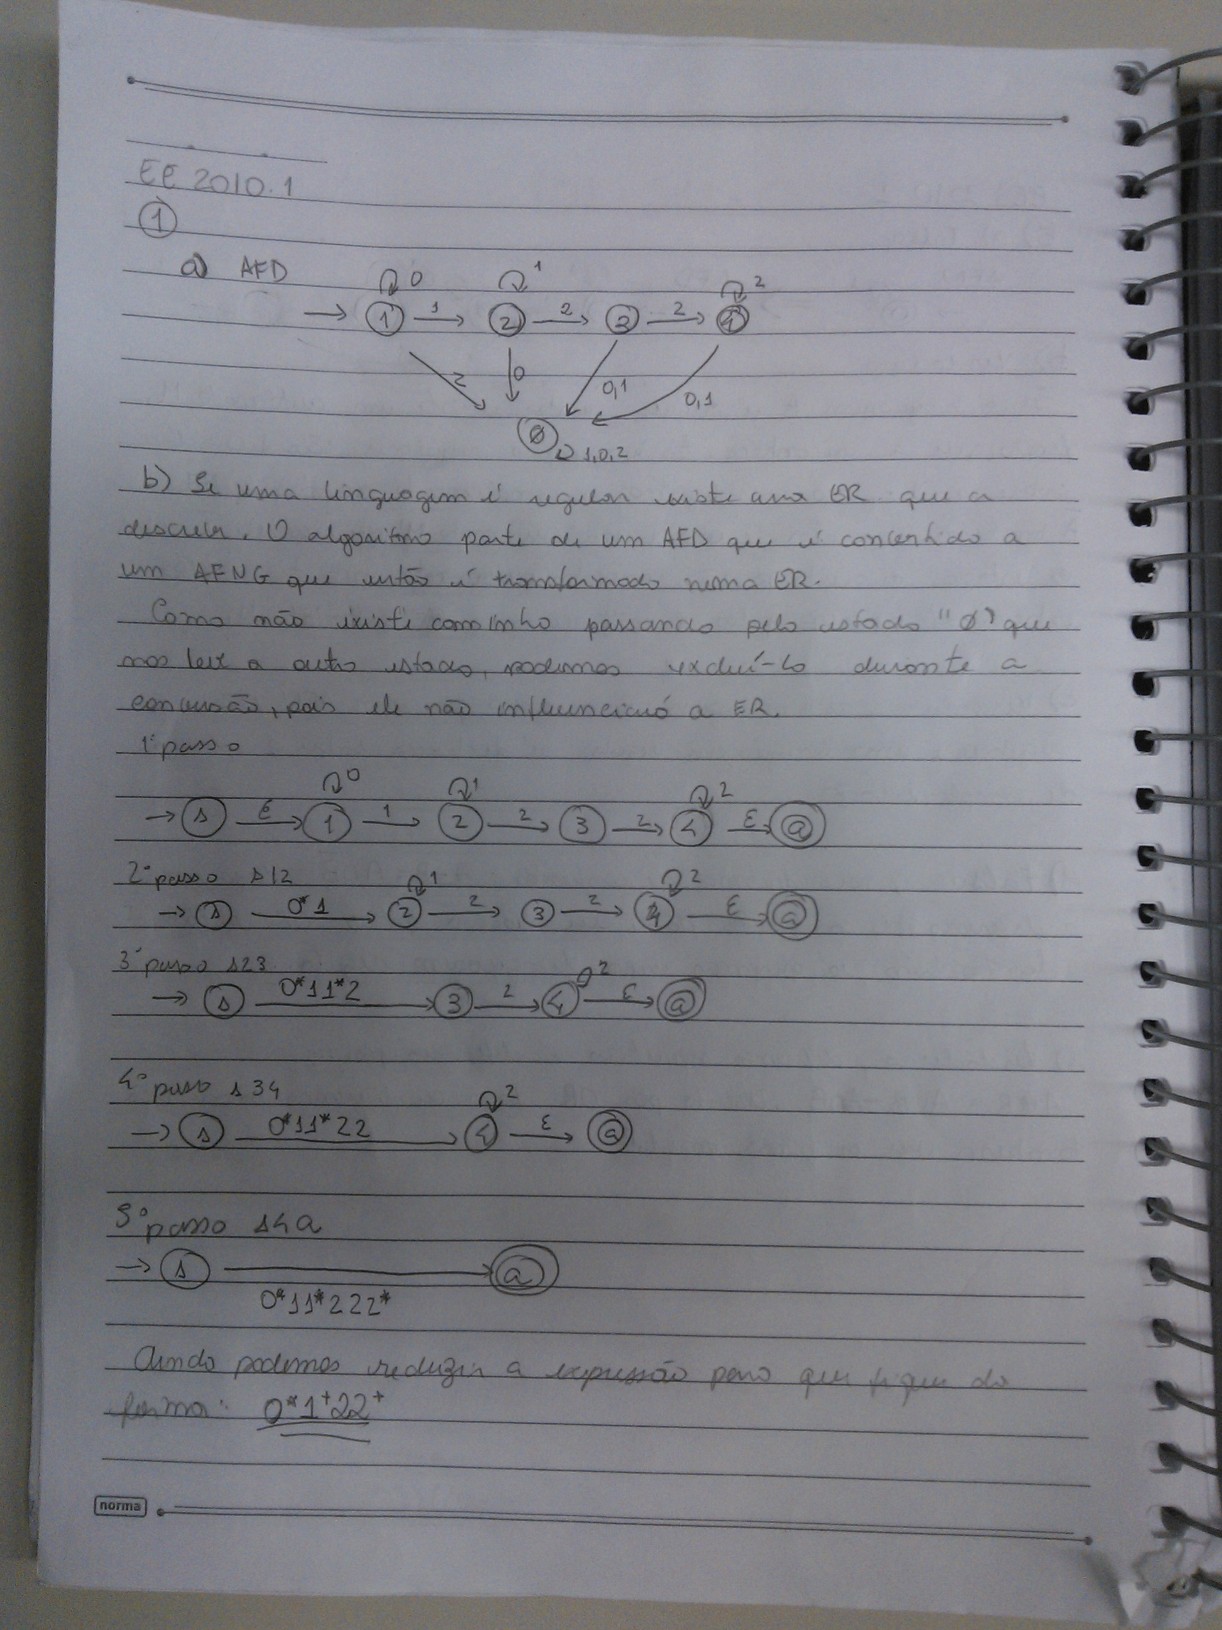 EE 2010.1
1
a) AFD
0 1 2
1 1 2 2 3 2 4
2 0 0,1 0,1
Ø 1,0,2
b) Se uma linguagem é regular existe uma ER que a
descreve. O algoritmo parte de um AFD que é convertido a
um AFNG que então é transformado numa ER.
Como não existe caminho passando pelo estado "Ø" que
nos leve a outro estado, podemos excluí-lo durante a
conversão, pois ele não influenciará a ER.
1º passo
0 1 2
s ε 1 1 2 2 3 2 4 ε a
2º passo s12
1 2
s 0*1 2 2 3 2 4 ε a
3º passo s23
2
s 0*11*2 3 2 4 ε a
4º passo s34
2
s 0*11*22 4 ε a
5º passo s4a
s a
0*11*222*
Ainda podemos reduzir a expressão para que fique da
forma: 0*1⁺22⁺
norma